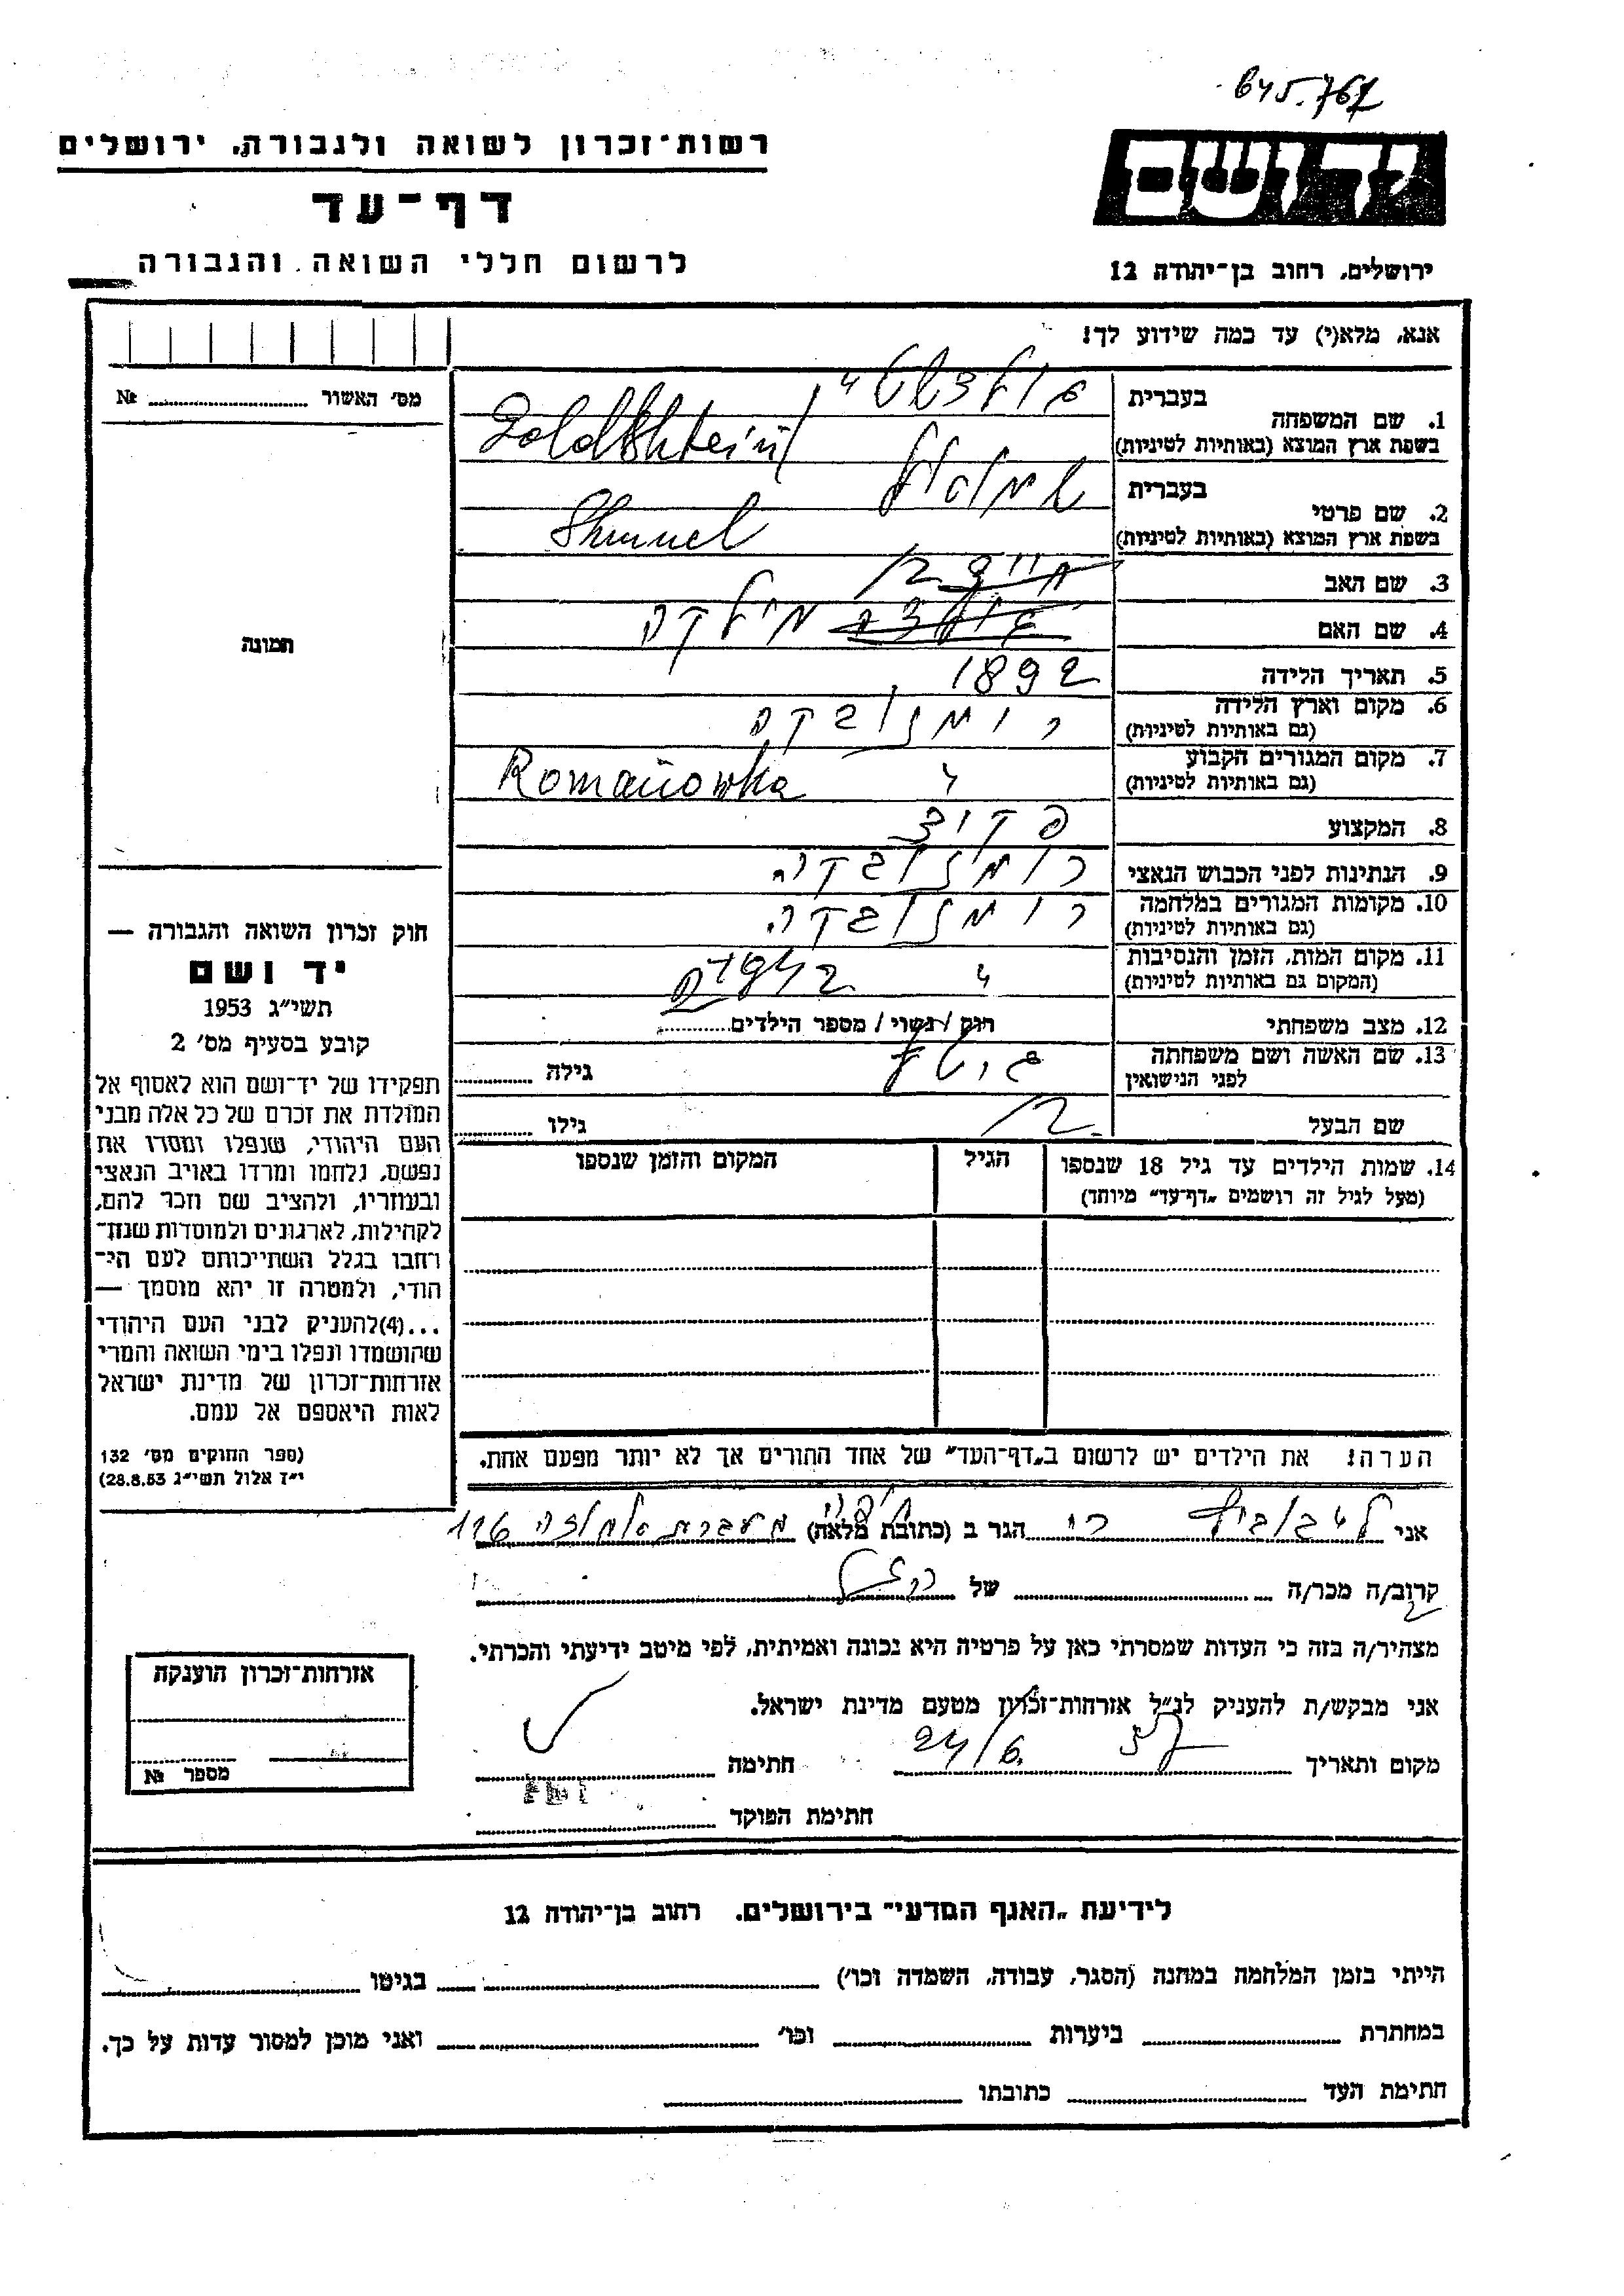 645.767
רשות־זכרון לשואה ולגבורה, ירושלים
יד ושם
דף־עד
לרשום חללי השואה והגבורה
ירושלים, רחוב בן־יהודה 12
אנא, מלא(י) עד כמה שידוע לך!
מס' האשור № 
1. שם המשפחה
בעברית גולדשטיין
בשפת ארץ המוצא (באותיות לטיניות) Goldshtein
2. שם פרטי
בעברית שמואל
בשפת ארץ המוצא (באותיות לטיניות) Shmuel
3. שם האב
4. שם האם מילקה
5. תאריך הלידה 1892
6. מקום וארץ הלידה רומנובקה
(גם באותיות לטיניות)
7. מקום המגורים הקבוע " Romanowka
(גם באותיות לטיניות)
8. המקצוע
9. הנתינות לפני הכבוש הנאצי רומנובקה
10. מקומות המגורים במלחמה רומנובקה
(גם באותיות לטיניות)
11. מקום המות, הזמן והנסיבות "
(המקום גם באותיות לטיניות)
12. מצב משפחתי רווק / נשוי / מספר הילדים
13. שם האשה ושם משפחתה גילה
לפני הנישואין
שם הבעל גילו
14. שמות הילדים עד גיל 18 שנספו הגיל המקום והזמן שנספו
(מעל לגיל זה רושמים "דף־עד" מיוחד)
תמונה
חוק זכרון השואה והגבורה —
יד ושם
תשי"ג 1953
קובע בסעיף מס' 2
תפקידו של יד־ושם הוא לאסוף אל
המולדת את זכרם של כל אלה מבני
העם היהודי, שנפלו ומסרו את
נפשם, נלחמו ומרדו באויב הנאצי
ובעוזריו, ולהציב שם וזכר להם,
לקהילות, לארגונים ולמוסדות שנח־
רחבו בגלל השתייכותם לעם הי־
הודי, ולמטרה זו יהא מוסמך —
...(4)להעניק לבני העם היהודי
שהושמדו ונפלו בימי השואה והמרי
אזרחות־זכרון של מדינת ישראל
לאות היאספם אל עמם.
(ספר החוקים מס' 132
י"ז אלול תשי"ג 28.8.53)
הערה! את הילדים יש לרשום ב"דף־העד" של אחד ההורים אך לא יותר מפעם אחת.
אני הגר ב (כתובת מלאה) מעברת
קרוב/ה מכר/ה של
מצהיר/ה בזה כי העדות שמסרתי כאן על פרטיה היא נכונה ואמיתית, לפי מיטב ידיעתי והכרתי.
אני מבקש/ת להעניק לנ"ל אזרחות־זכרון מטעם מדינת ישראל.
מקום ותאריך 24/6 57 חתימה
חתימת הפוקד
אזרחות־זכרון הוענקה
מספר №
לידיעת "האגף המדעי" בירושלים, רחוב בן־יהודה 12
הייתי בזמן המלחמה במחנה (הסגר, עבודה, השמדה וכו') בגיטו
במחתרת ביערות וכו' ואני מוכן למסור עדות על כך.
חתימת העד כתובתו